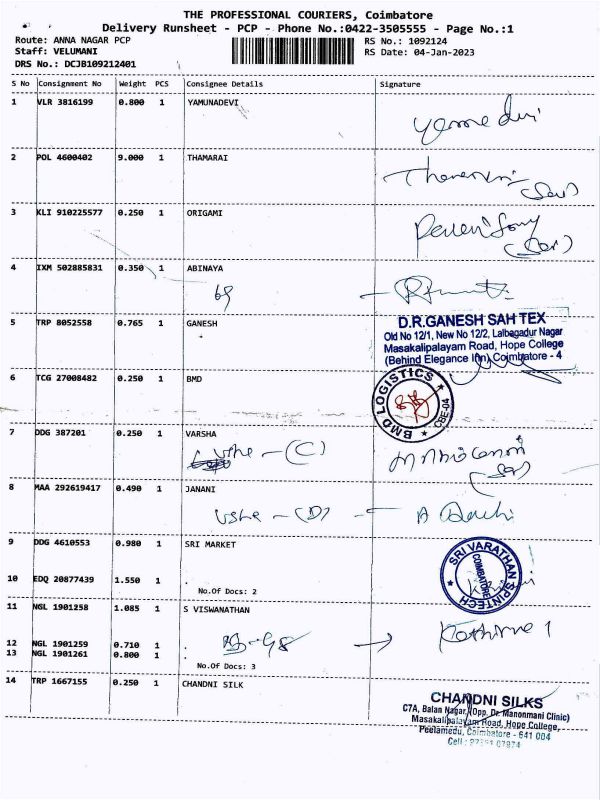 THE PROFESSIONAL COURIERS, Coimbatore
Delivery Runsheet - PCP - Phone No.:0422-3505555 - Page No.:1
Route: ANNA NAGAR PCP RS No.: 1092124
Staff: VELUMANI RS Date: 04-Jan-2023
DRS No.: DCJB109212401
S No Consignment No Weight PCS Consignee Details Signature
1 VLR 3816199 0.800 1 YAMUNADEVI
2 POL 4600402 9.000 1 THAMARAI
3 KLI 910225577 0.250 1 ORIGAMI
4 IXM 502885831 0.350 1 ABINAYA
69
5 TRP 8052558 0.765 1 GANESH
D.R.GANESH SAH TEX
Old No 12/1, New No 12/2, Lalbagadur Nagar
Masakalipalayam Road, Hope College
(Behind Elegance Inn) Coimbatore - 4
6 TCG 27008482 0.250 1 BMD
BMD LOGISTICS
CBE-04
7 DDG 387201 0.250 1 VARSHA
8 MAA 292619417 0.490 1 JANANI
9 DDG 4610553 0.980 1 SRI MARKET
SRI VARATHAN SPINTECH
COIMBATORE
10 EDQ 20877439 1.550 1 .
No.Of Docs: 2
11 NGL 1901258 1.085 1 S VISWANATHAN
12 NGL 1901259 0.710 1 .
13 NGL 1901261 0.800 1 .
No.Of Docs: 3
14 TRP 1667155 0.250 1 CHANDNI SILK
CHANDNI SILKS
C7A, Balan Nagar, (Opp. Dr. Manonmani Clinic)
Masakalipalayam Road, Hope College,
Peelamedu, Coimbatore - 641 004
Cell :